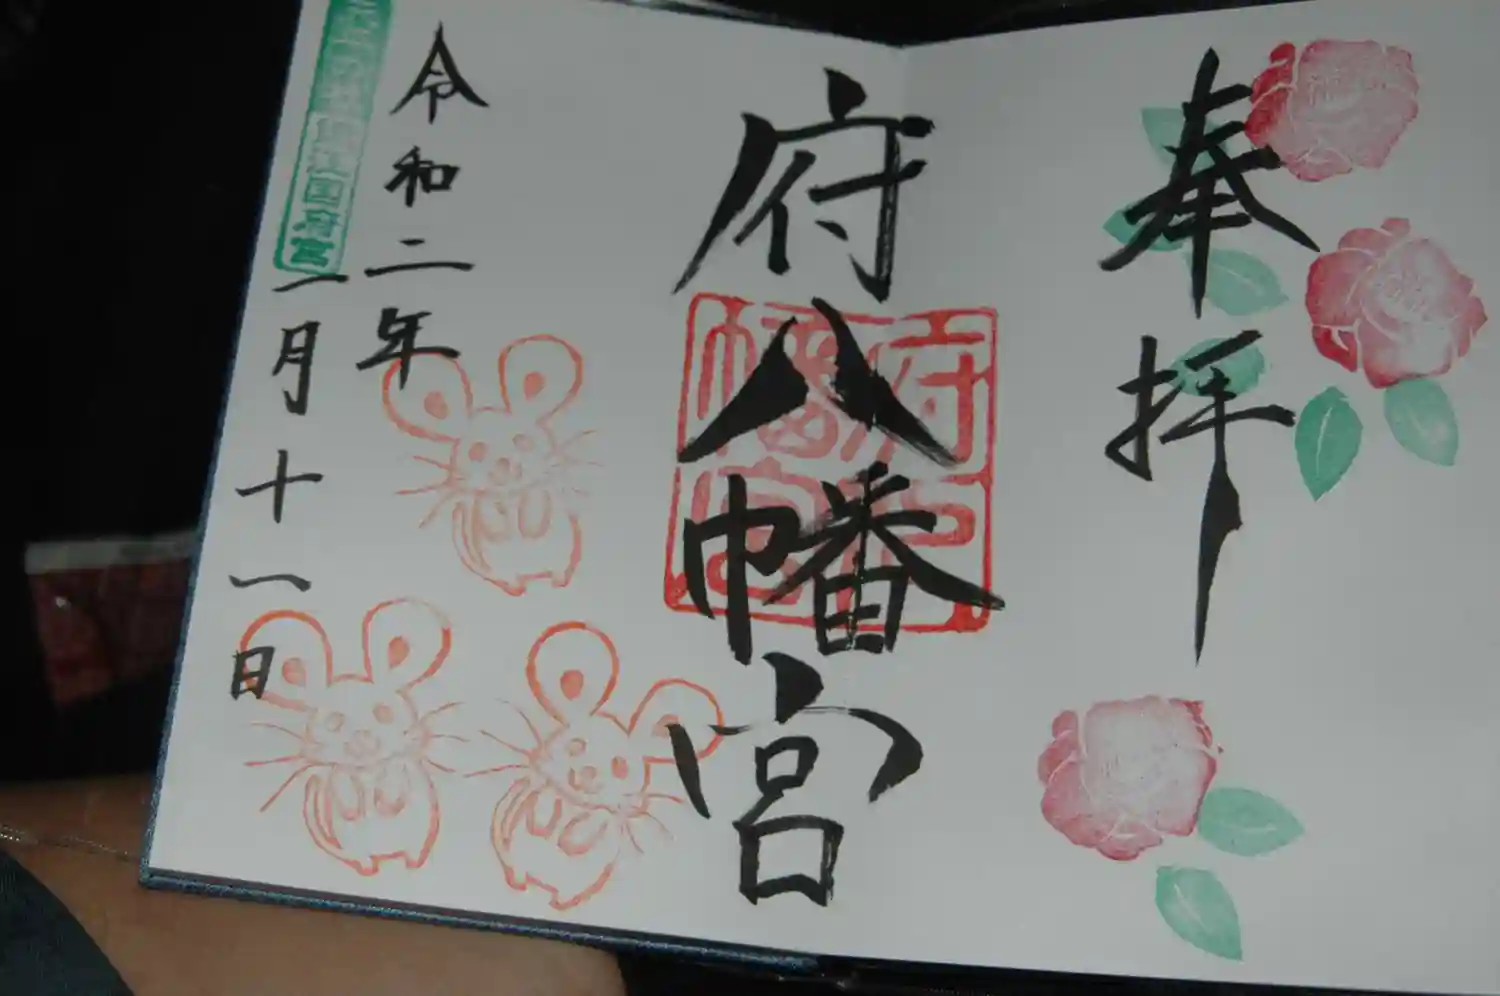 奉拝
府八幡宮
令和二年
一月十一日
府八幡宮